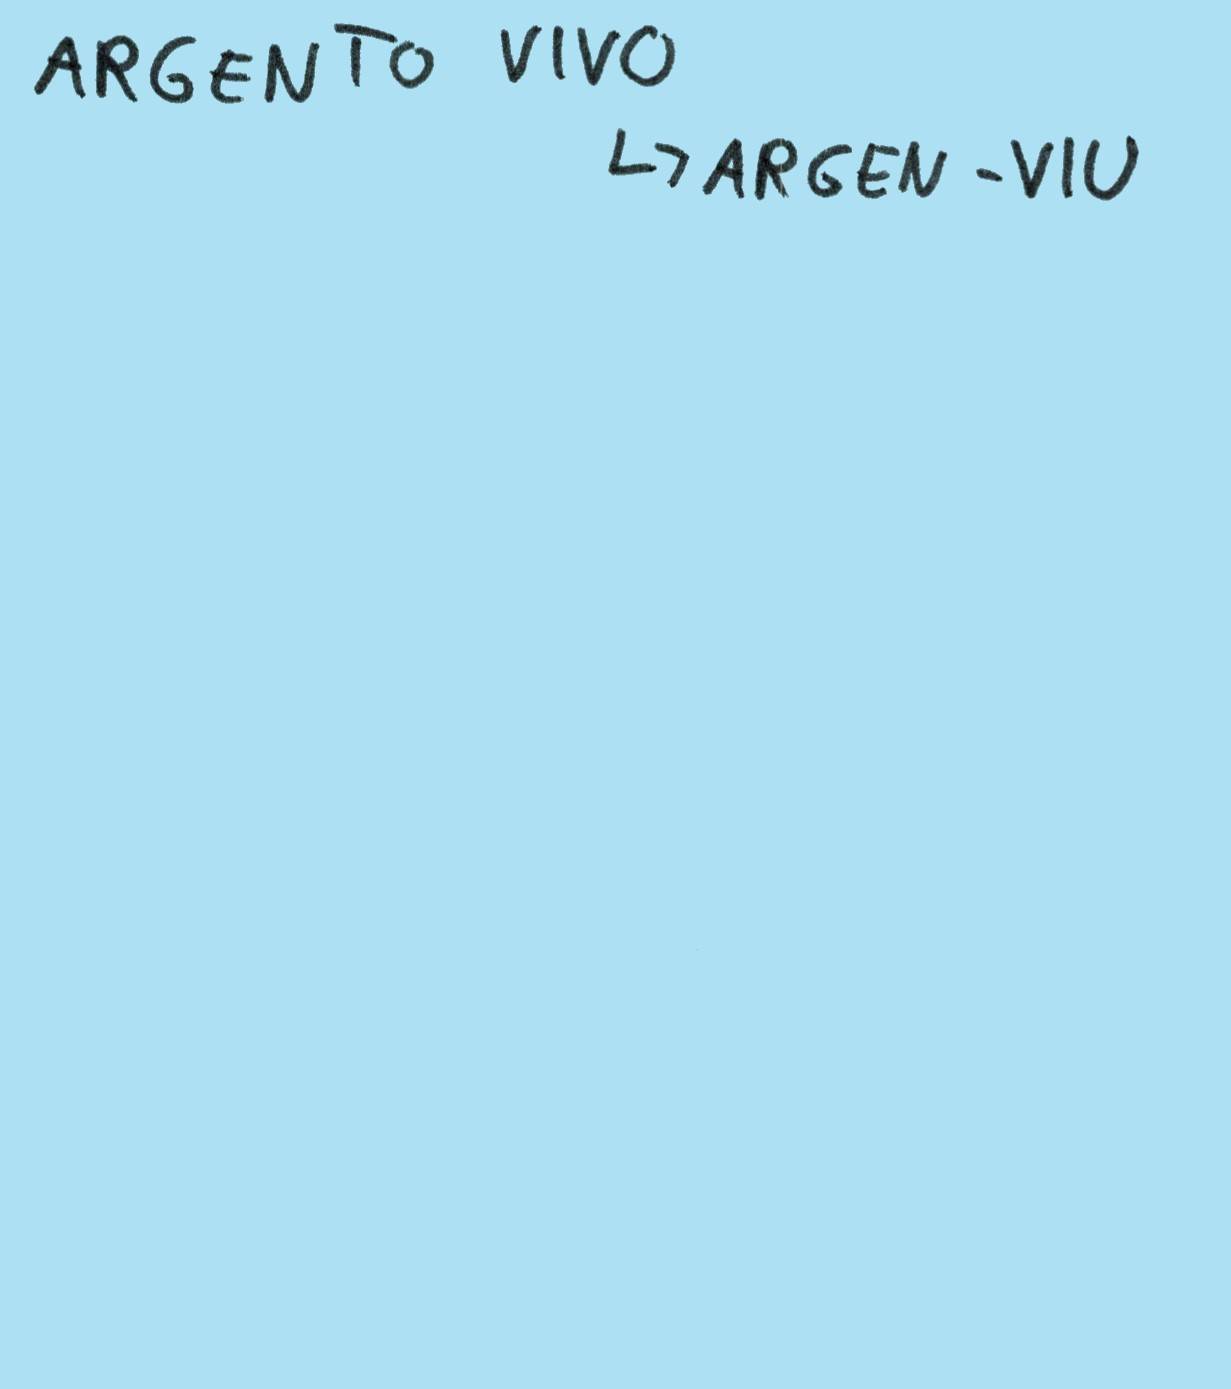 ARGENTO VIVO
↳ ARGEN-VIU